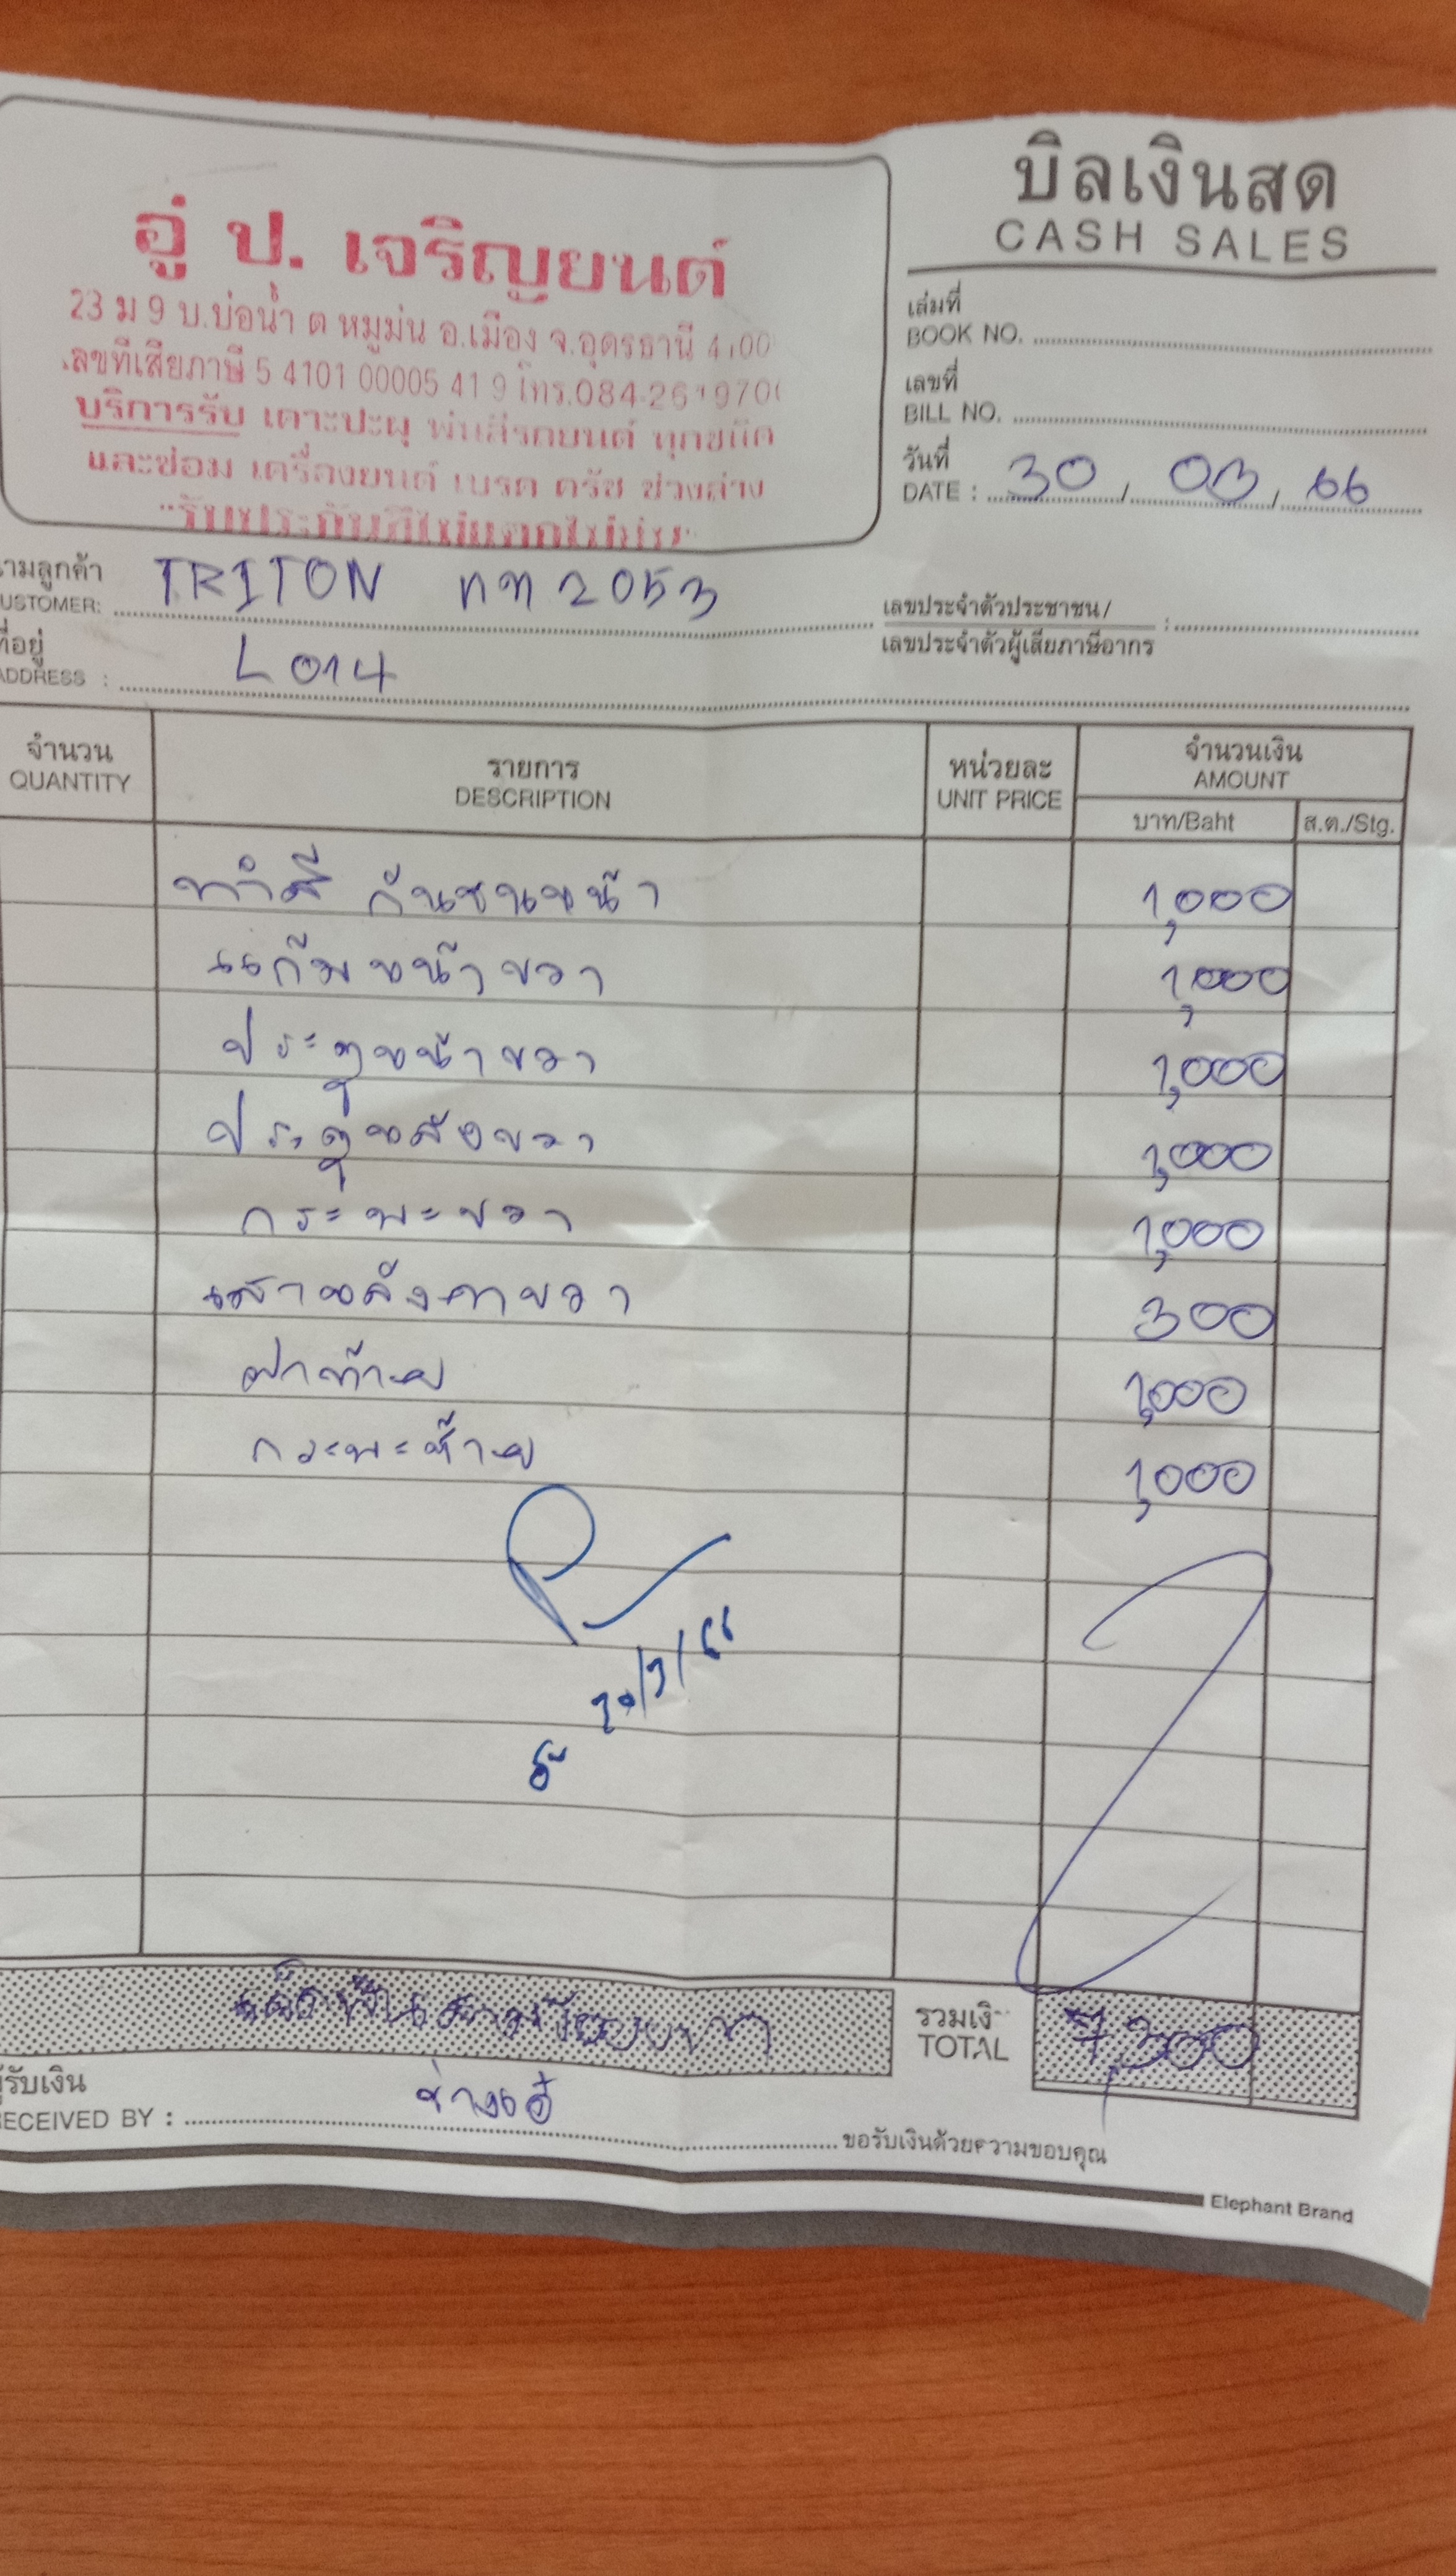 บิลเงินสด
CASH SALES
อู่ ป. เจริญยนต์
23 ม 9 บ.บ่อน้ำ ต หมูม่น อ.เมือง จ.อุดรธานี 4100
ลขที่เสียภาษี 5 4101 00005 41 9 โทร.084-261970
บริการรับ เคาะปะผุ พ่นสีรถยนต์ ทุกชนิด
และซ่อม เครื่องยนต์ เบรค ครัช ช่วงล่าง
เล่มที่
BOOK NO.
เลขที่
BILL NO.
วันที่
DATE : 30 / 03 / 66
ามลูกค้า
USTOMER: TRITON กท 2053
เลขประจำตัวประชาชน/
เลขประจำตัวผู้เสียภาษีอากร :
ที่อยู่
ADDRESS : L 014
จำนวน รายการ หน่วยละ จำนวนเงิน
QUANTITY DESCRIPTION UNIT PRICE AMOUNT
บาท/Baht ส.ต./Stg.
ทำสี กันชนหน้า 1,000
แก้มหน้าขวา 1,000
ประตูหน้าขวา 1,000
ประตูหลังขวา 1,000
กระพะขวา 1,000
เสาหลังคาขวา 300
ฝาท้าย 1,000
กระพะซ้าย 1,000
30/3/66
เจ็ดพันสามร้อยบาท
รวมเงิ
TOTAL 7,300
ผู้รับเงิน
RECEIVED BY :
ขอรับเงินด้วยความขอบคุณ
Elephant Brand